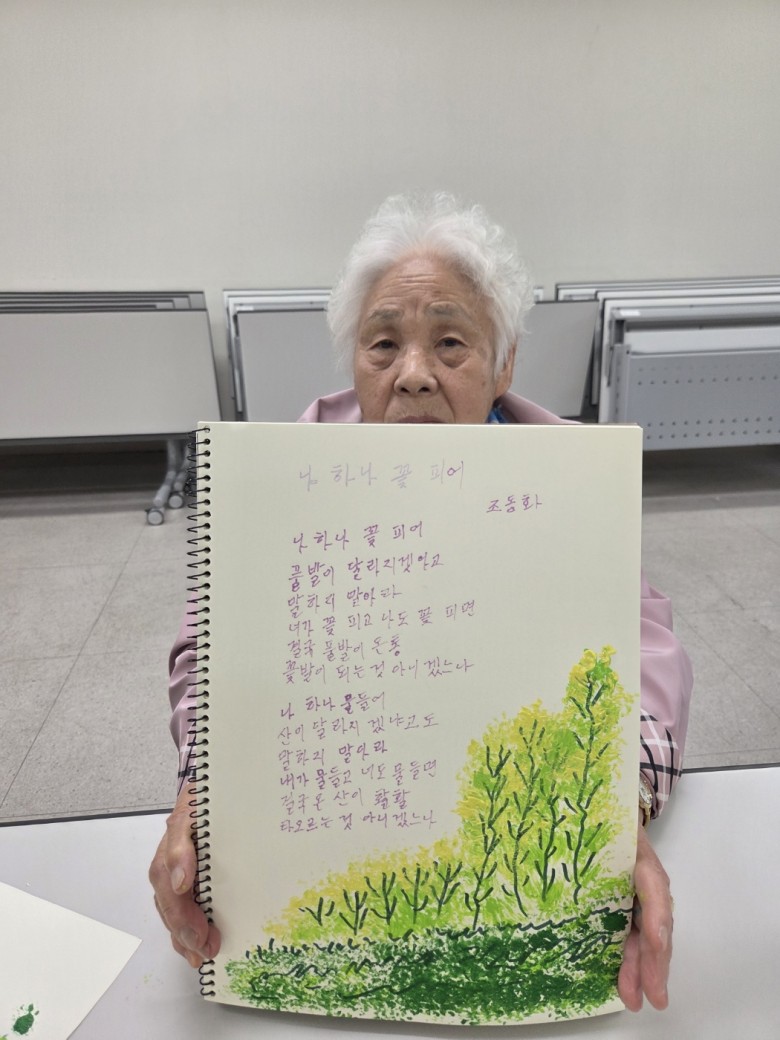 나 하나 꽃 피어
조동화
나 하나 꽃 피어
풀밭이 달라지겠냐고
말하지 말아라
네가 꽃 피고 나도 꽃 피면
결국 풀밭이 온통
꽃밭이 되는 것 아니겠느냐
나 하나 물들어
산이 달라지겠냐고도
말하지 말아라
내가 물들고 너도 물들면
결국 온 산이 활활
타오르는 것 아니겠느냐